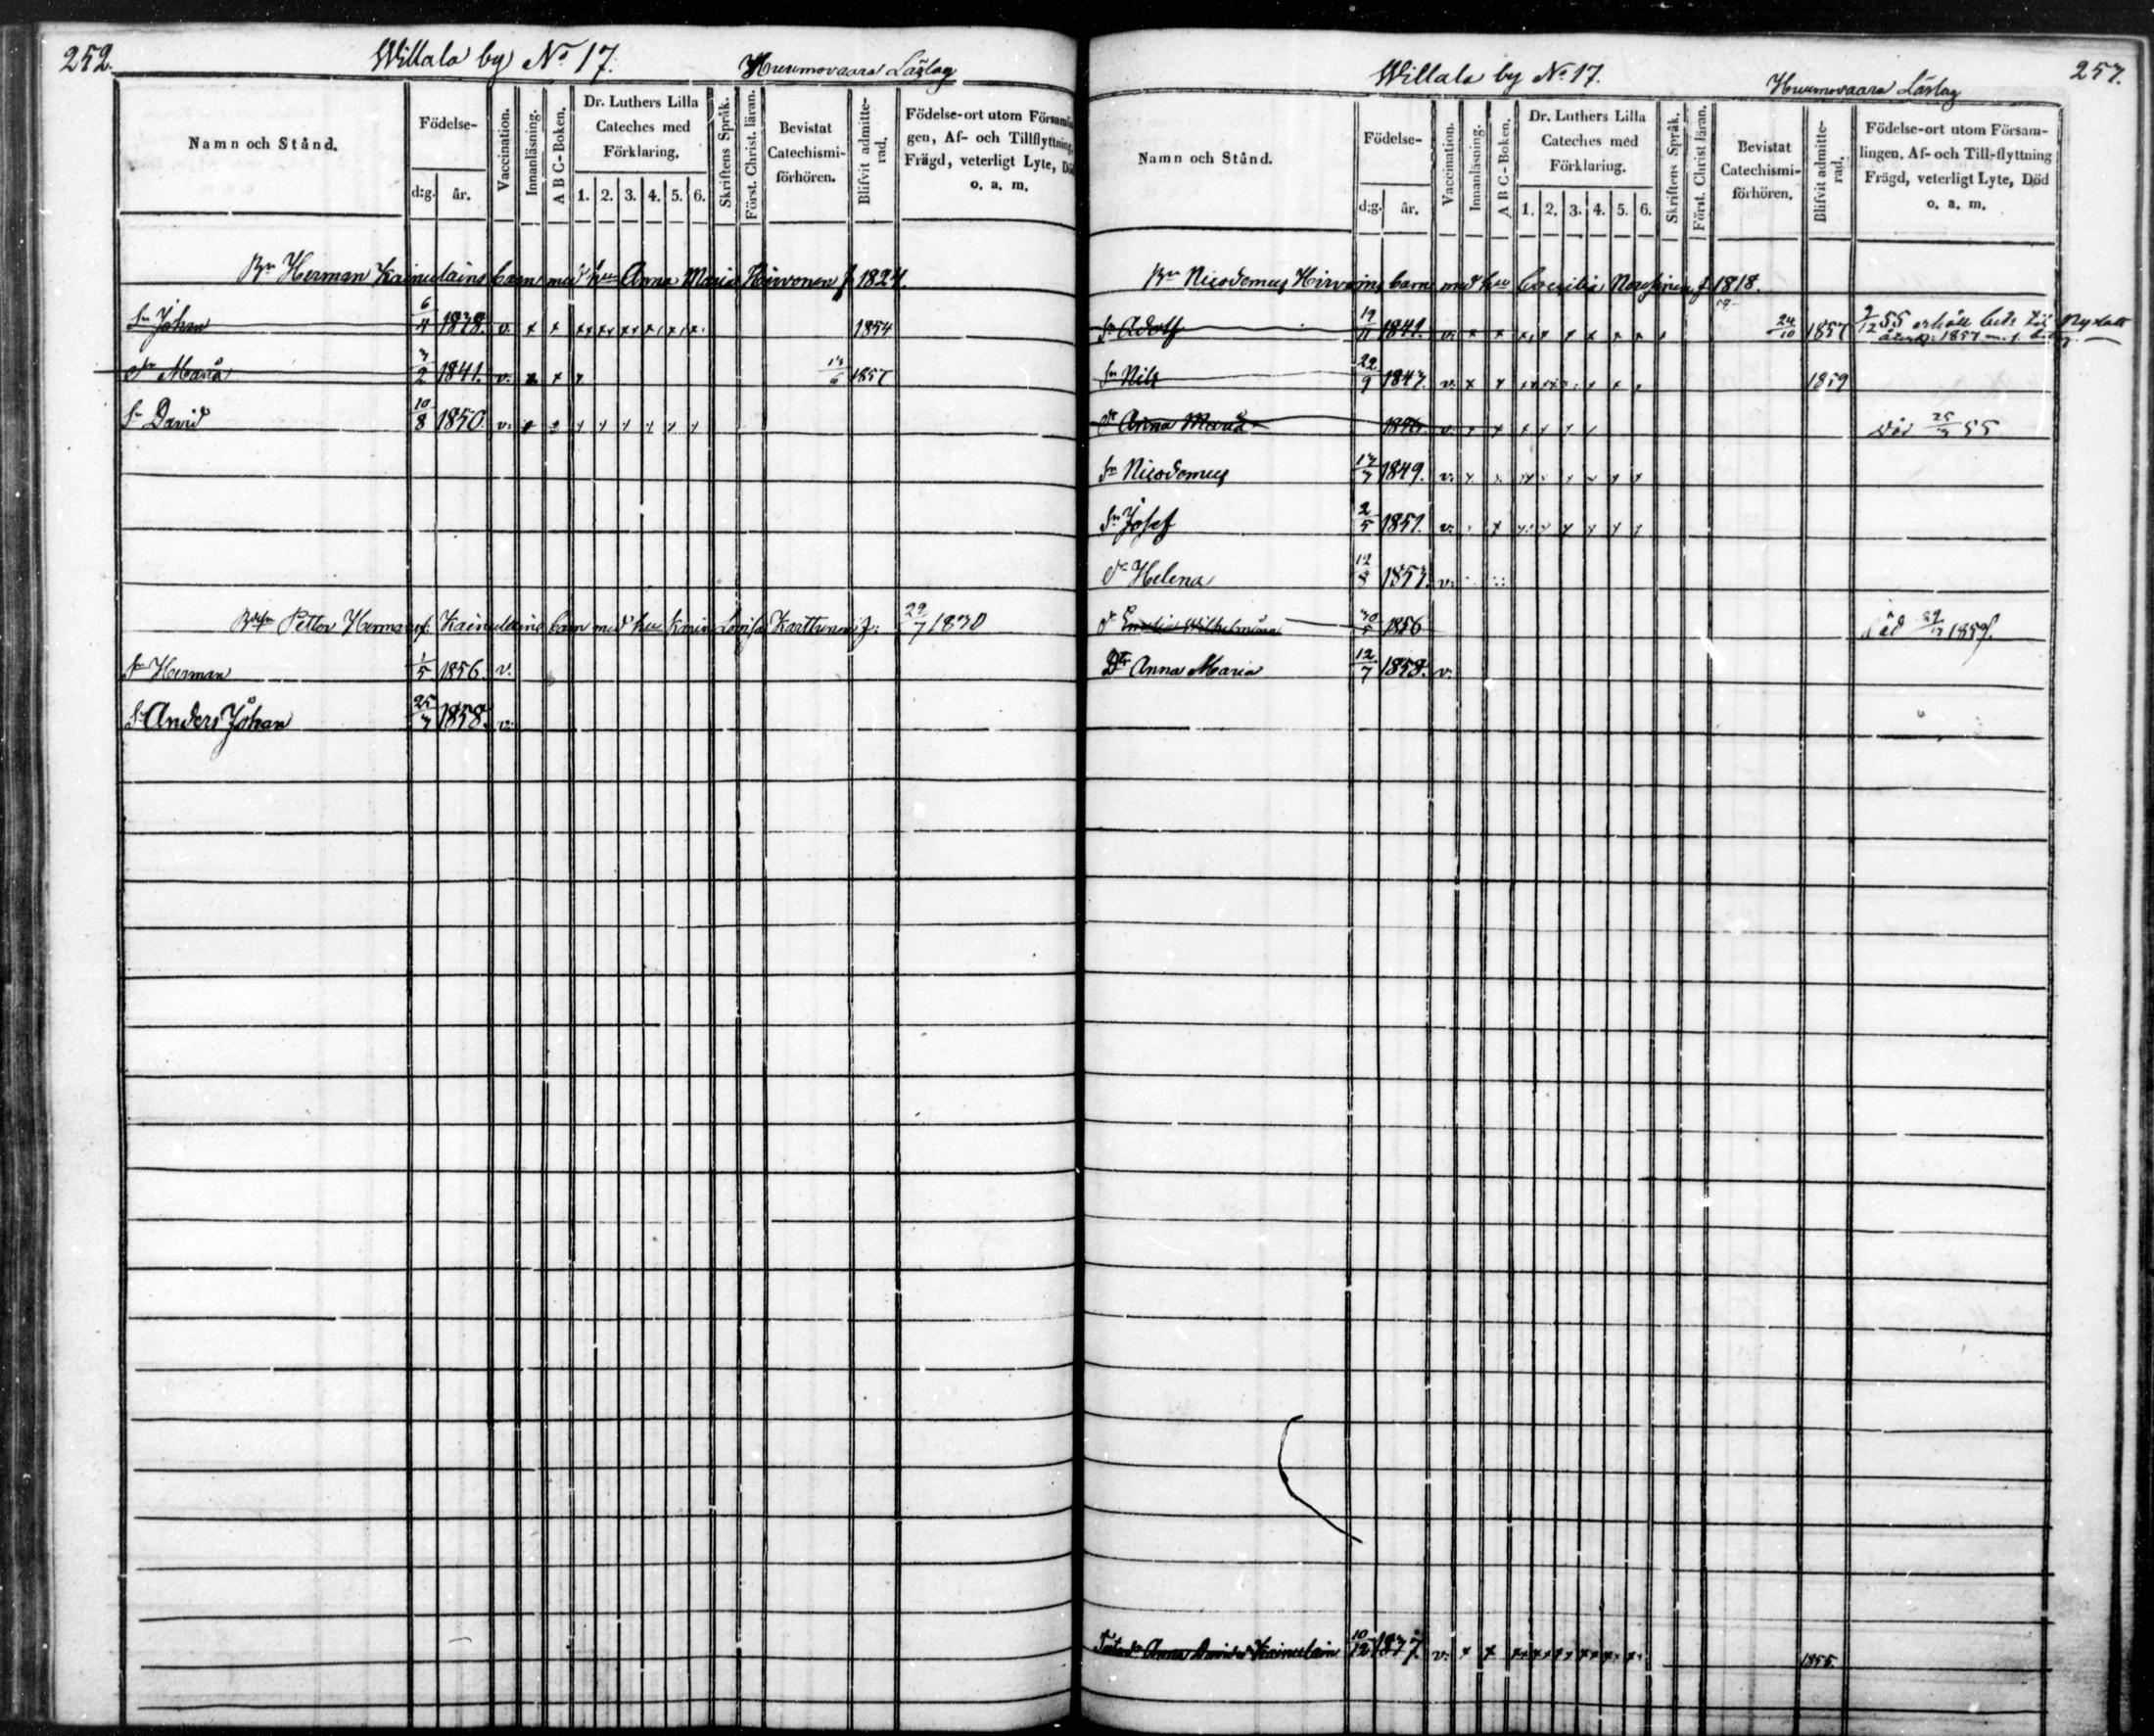 252.
Willala by No 17.
Huumovaara Läslag
Namn och Stånd.
Födelse-
d:g. år.
Vaccination.
Innanläsning.
A B C-Boken.
Dr. Luthers Lilla
Cateches med
Förklaring.
1. 2. 3. 4. 5. 6.
Skriftens Språk.
Först. Christ. läran.
Bevistat
Catechismi-
förhören.
Blifvit admitte-
rad.
Födelse-ort utom Försam
gen, Af- och Tillflyttning,
Frägd, veterligt Lyte, Död
o. a. m.
Herman Kainulains barn med hu Anna Maria Hirvonen f 1824.
Sn Johan 6/4 1838. v. x x xx xx xx x x x 1854
Dr Maria 3/2 1841. v. x x x 6 1857
Sn David 10/8 1850. v. x x x x x x x x
Petter Hermans: Kainulains barn med hu Karin Lovisa Karttunen f: 29/7 1830
Sn Herman 1/5 1856. v.
Sn Anders Johan 25/3 1858. v.
257.
Willala by No 17.
Huumovaara Läslag
Namn och Stånd.
Födelse-
d:g. år.
Vaccination.
Innanläsning.
A B C-Boken.
Dr. Luthers Lilla
Cateches med
Förklaring.
1. 2. 3. 4. 5. 6.
Skriftens Språk.
Först. Christ läran.
Bevistat
Catechismi-
förhören.
Blifvit admitte-
rad.
Födelse-ort utom Försam-
lingen. Af- och Till-flyttning
Frägd, veterligt Lyte, Död
o. a. m.
Nicodemus Hirvoins barn med hu Coecilia f 1818.
Sn Adolf 19/11 1841. v. x x x x x x x x x 24/10 1857 55 erhöll betg till Nyslott
1857
Sn Nils 22/9 1843. v. x x 1859
Dr Anna Maria 1846 v. x x x x x x Död 55
Sn Nicodemus 1849. v. x
Sn Josef 2/5 1851. v. x
Dr Helena 12/8 1853. v.
Dr Emelia Wilhelmina 30/5 1856 Död 1859.
Dtr Anna Maria 12/7 1858. v.
Anna Davidsd Kainulain 10/12 1837. v. x x xx xx xx xx xx x 1855.